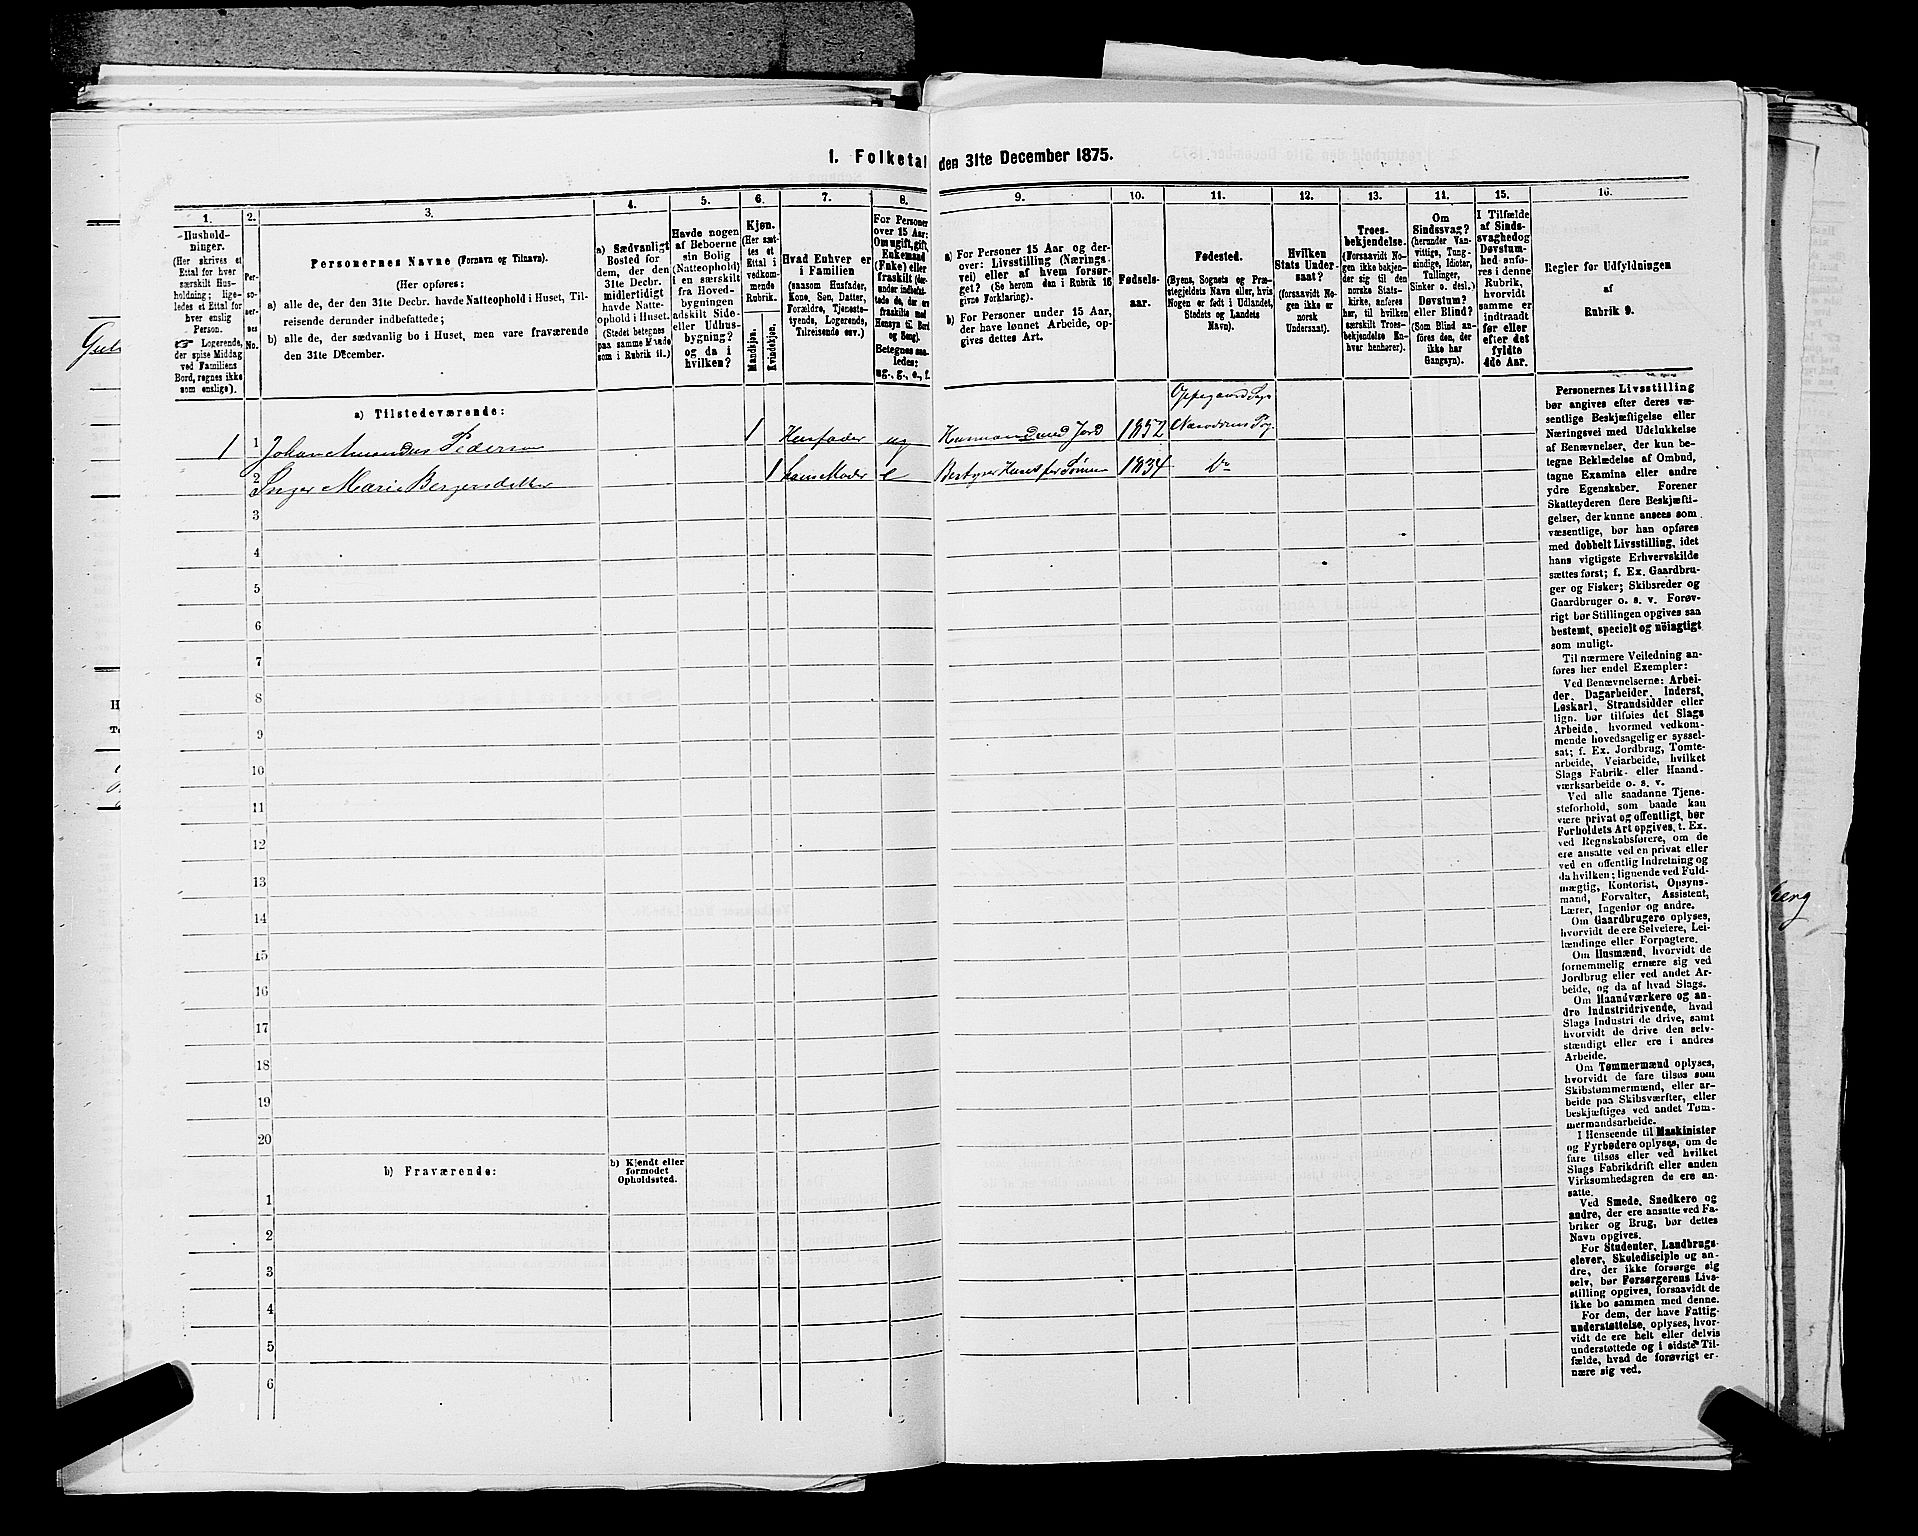 1. Folketal den 31te December 1875.
1.
Hushold-
ninger.
(Her skrives et
Ettal for hver
særskilt Hus-
holdning; lige-
ledes et Ettal for
hver enslig
Person.
☞ Logerende,
der spise Middag
ved Familiens
Bord, regnes ikke
som enslige).
2.
Per-
so-
ner-
nes
No.
3.
Personernes Navne (Fornavn og Tilnavn).
(Her opføres:
a) alle de, der den 31te Decbr. havde Natteophold i Huset, Til-
reisende derunder indbefattede;
b) alle de, der sædvanlig bo i Huset, men vare fraværende
den 31te December.
4.
a) Sædvanligt
Bosted for
dem, der den
31te Decbr.
midlertidigt
havde Natte-
ophold i Huset.
(Stedet betegnes
paa samme Maade
som i Rubrik 11.)
5.
Havde nogen
af Beboerne
sin Bolig
(Natteophold)
i en særskilt
fra Hoved-
bygningen
adskilt Side-
eller Udhus-
bygning?
og da i
hvilken?
6.
Kjøn.
(Her sæt-
tes et
Ettal i
vedkom-
mende
Rubrik.
Mandkjøn.
Kvindekjøn.
7.
Hvad Enhver er
i Familien
(saasom Husfader,
Kone, Søn, Datter,
Forældre, Tjeneste-
tyende, Logerende,
Tilreisende osv.)
8.
For Personer
over 15 Aar:
Om ugift, gift,
Enkemand
(Enke) eller
fraskilt
Betegnes saa-
ledes:
ug., g., e., f.
9.
a) For Personer 15 Aar og der-
over: Livsstilling (Nærings-
vei) eller af hvem forsør-
get? (Se herom den i Rubrik 16
givne Forklaring).
b) For Personer under 15 Aar,
der have lønnet Arbeide, op-
gives dettes Art.
10.
Fødsels-
aar.
11.
Fødested.
(Byens, Sognets og Præ-
stegjeldets Navn eller, hvis
Nogen er født i Udlandet,
Stedets og Landets
Navn).
12.
Hvilken
Stats Under-
saat?
(forsaavidt No-
gen ikke er
norsk
Undersaat).
13.
Troes-
bekjendelse.
(Forsaavidt No-
gen ikke bekjen-
der sig til den
norske Stats-
kirke, anføres
her, til hvilken
særskilt Troes-
bekjendelse En-
hver henhører).
14.
Om
Sindssvag?
(herunder Van-
vittige, Tung-
sindige, Idioter,
Tullinger,
Sinker o. desl.)
Døvstum?
eller Blind?
(Som Blind an-
føres den, der
ikke har
Gangsyn).
15.
I Tilfælde
af Sinds-
svaghed og
Døvstum-
hed anfø-
res i denne
Rubrik,
hvorvidt
samme er
indtraadt
før eller
efter det
fyldte
4de Aar.
16.
Regler for Udfyldningen
af
Rubrik 9.
a) Tilstedeværende:
1 1 Johan Amandus Pedersen 1 Husfader ug Husmand med Jord 1852 Oppegaard Sogn
Næsoddens Pg.
2 Inger Marie Bergersdatter 1 hans Moder e Bestyrer Huset for Sønnen 1834 Do
3
4
5
6
7
8
9
10
11
12
13
14
15
16
17
18
19
20
b) Fraværende:
b) Kjendt eller
formodet
Opholdssted.
1
2
3
4
5
6
Personernes Livsstilling
bør angives efter deres væ-
sentlige Beskjæftigelse eller
Næringsvei med Udelukkelse
af Benævnelser, der kun be-
tegne Beklædelse af Ombud,
tagne Examina eller andre
ydre Egenskaber. Forener
Skatteyderen flere Beskjæfti-
gelser, der kunne ansees som
væsentlige, bør han opføres
med dobbelt Livsstilling, idet
hans vigtigste Erhvervskilde
sættes først; f. Ex. Gaardbru-
ger og Fisker; Skibsreder og
Gaardbruger o. s. v. Forøv-
rigt bør Stillingen opgives saa
bestemt, specielt og nøiagtigt
som muligt.
Til nærmere Veiledning an-
føres her endel Exempler:
Ved Benævnelserne: Arbei-
der, Dagarbeider, Inderst,
Løskarl, Strandsidder eller
lign. bør tilføies det Slags
Arbeide, hvormed vedkom-
mende hovedsagelig er syssel-
sat; f. Ex. Jordbrug, Tomte-
arbeide, Veiarbeide, hvilket
Slags Fabrik- eller Haand-
værksarbeide o. s. v.
Ved alle saadanne Tjene-
steforhold, som baade kan
være privat og offentligt, bør
Forholdets Art opgives, t. Ex.
ved Regnskabsførere, om de
ere ansatte ved en privat eller
ved en offentlig Indretning og
da hvilken; lignende ved Fuld-
mægtig, Kontorist, Opsyns-
mand, Forvalter, Assistent,
Lærer, Ingeniør og andre.
Om Gaardbrugere oplyses,
hvorvidt de ere Selveiere, Lei-
lændinge eller Forpagtere.
Om Husmænd, hvorvidt de
fornemmelig ernære sig ved
Jordbrug eller ved andet Ar-
beide, og da af hvad Slags.
Om Haandværkere og an-
dre Industridrivende, hvad
Slags Industri de drive, samt
hvorvidt de drive den selv-
stændigt eller ere i andres
Arbeide.
Om Tømmermænd oplyses,
hvorvidt de fare tilsøs som
Skibstømmermænd, eller ar-
beide paa Skibsværfter, eller
beskjæftiges ved andet Tøm-
mermandsarbeide.
I Henseende til Maskinister
og Fyrbødere oplyses, om de
fare tilsøs eller ved hvilket
Slags Fabrikdrift eller anden
Virksomhedsgren de ere an-
satte.
Ved Smede, Snedkere og
andre, der ere ansatte ved Fa-
briker og Brug, bør dettes
Navn opgives.
For Studenter, Landbrugs-
elever, Skoledisciple og an-
dre, der ikke forsørge sig
selv, bør Forsørgerens Livs-
stilling opgives, forsaavidt de
ikke bo sammen med denne.
For dem, der have Fattig-
understøttelse, oplyses, hvor-
vidt de ere helt eller delvis
understøttede og i sidste Til-
fælde, hvad de forøvrigt er-
nære sig ved.